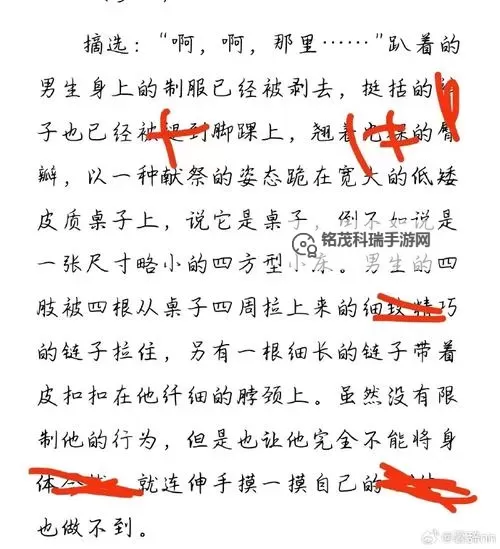 摘选:“啊，啊，那里……”趴着的
男生身上的制服已经被剥去，挺括的
子也已经被 到脚踝上，翘着 的臀
瓣，以一种献祭的姿态跪在宽大的低矮
皮质桌子上，说它是桌子，倒不如说是
一张尺寸略小的四方型小床。男生的四
肢被四根从桌子四周拉上来的细致精巧
的链子拉住，另有一根细长的链子带着
皮扣扣在他纤细的脖颈上。虽然没有限
制他的行为，但是也让他完全不能将身
体 就连伸手摸一摸自己的
也做不到。
铭茂科瑞手游网